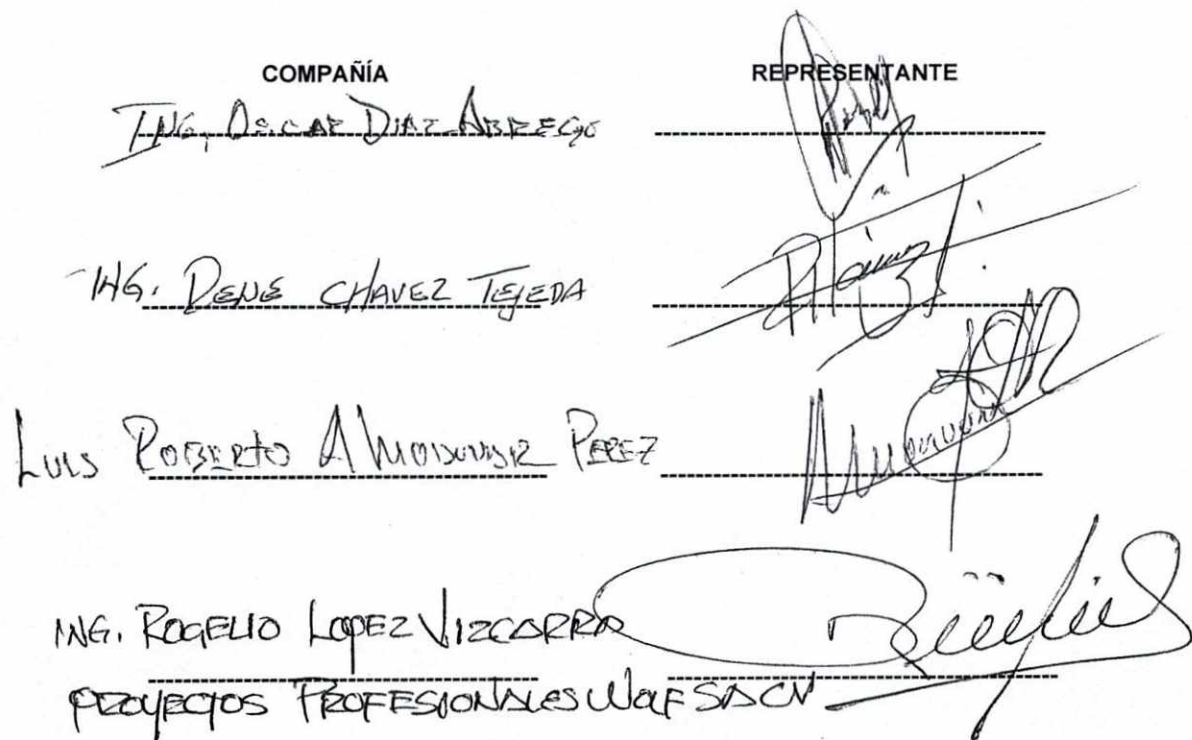 COMPAÑÍA REPRESENTANTE
ING. OSCAR DIAZ ABREGO
ING. RENE CHAVEZ TEJEDA
LUIS ROBERTO ALMODOVAR PEREZ
ING. ROGELIO LOPEZ VIZCARRA
PROYECTOS PROFESIONALES WOLF SA CV